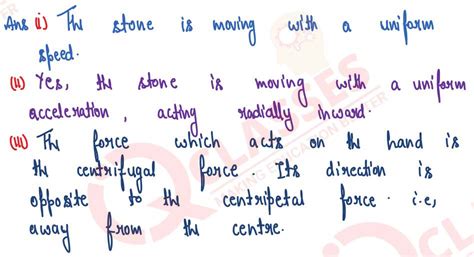 Ans (i) The stone is moving with a uniform
speed.
(ii) Yes, the stone is moving with a uniform
acceleration, acting radially inward.
(iii) The force which acts on the hand is
the centrifugal force. Its direction is
opposite to the centripetal force i.e,
away from the centre.
CLASSES
MAKING EDUCATION BETTER